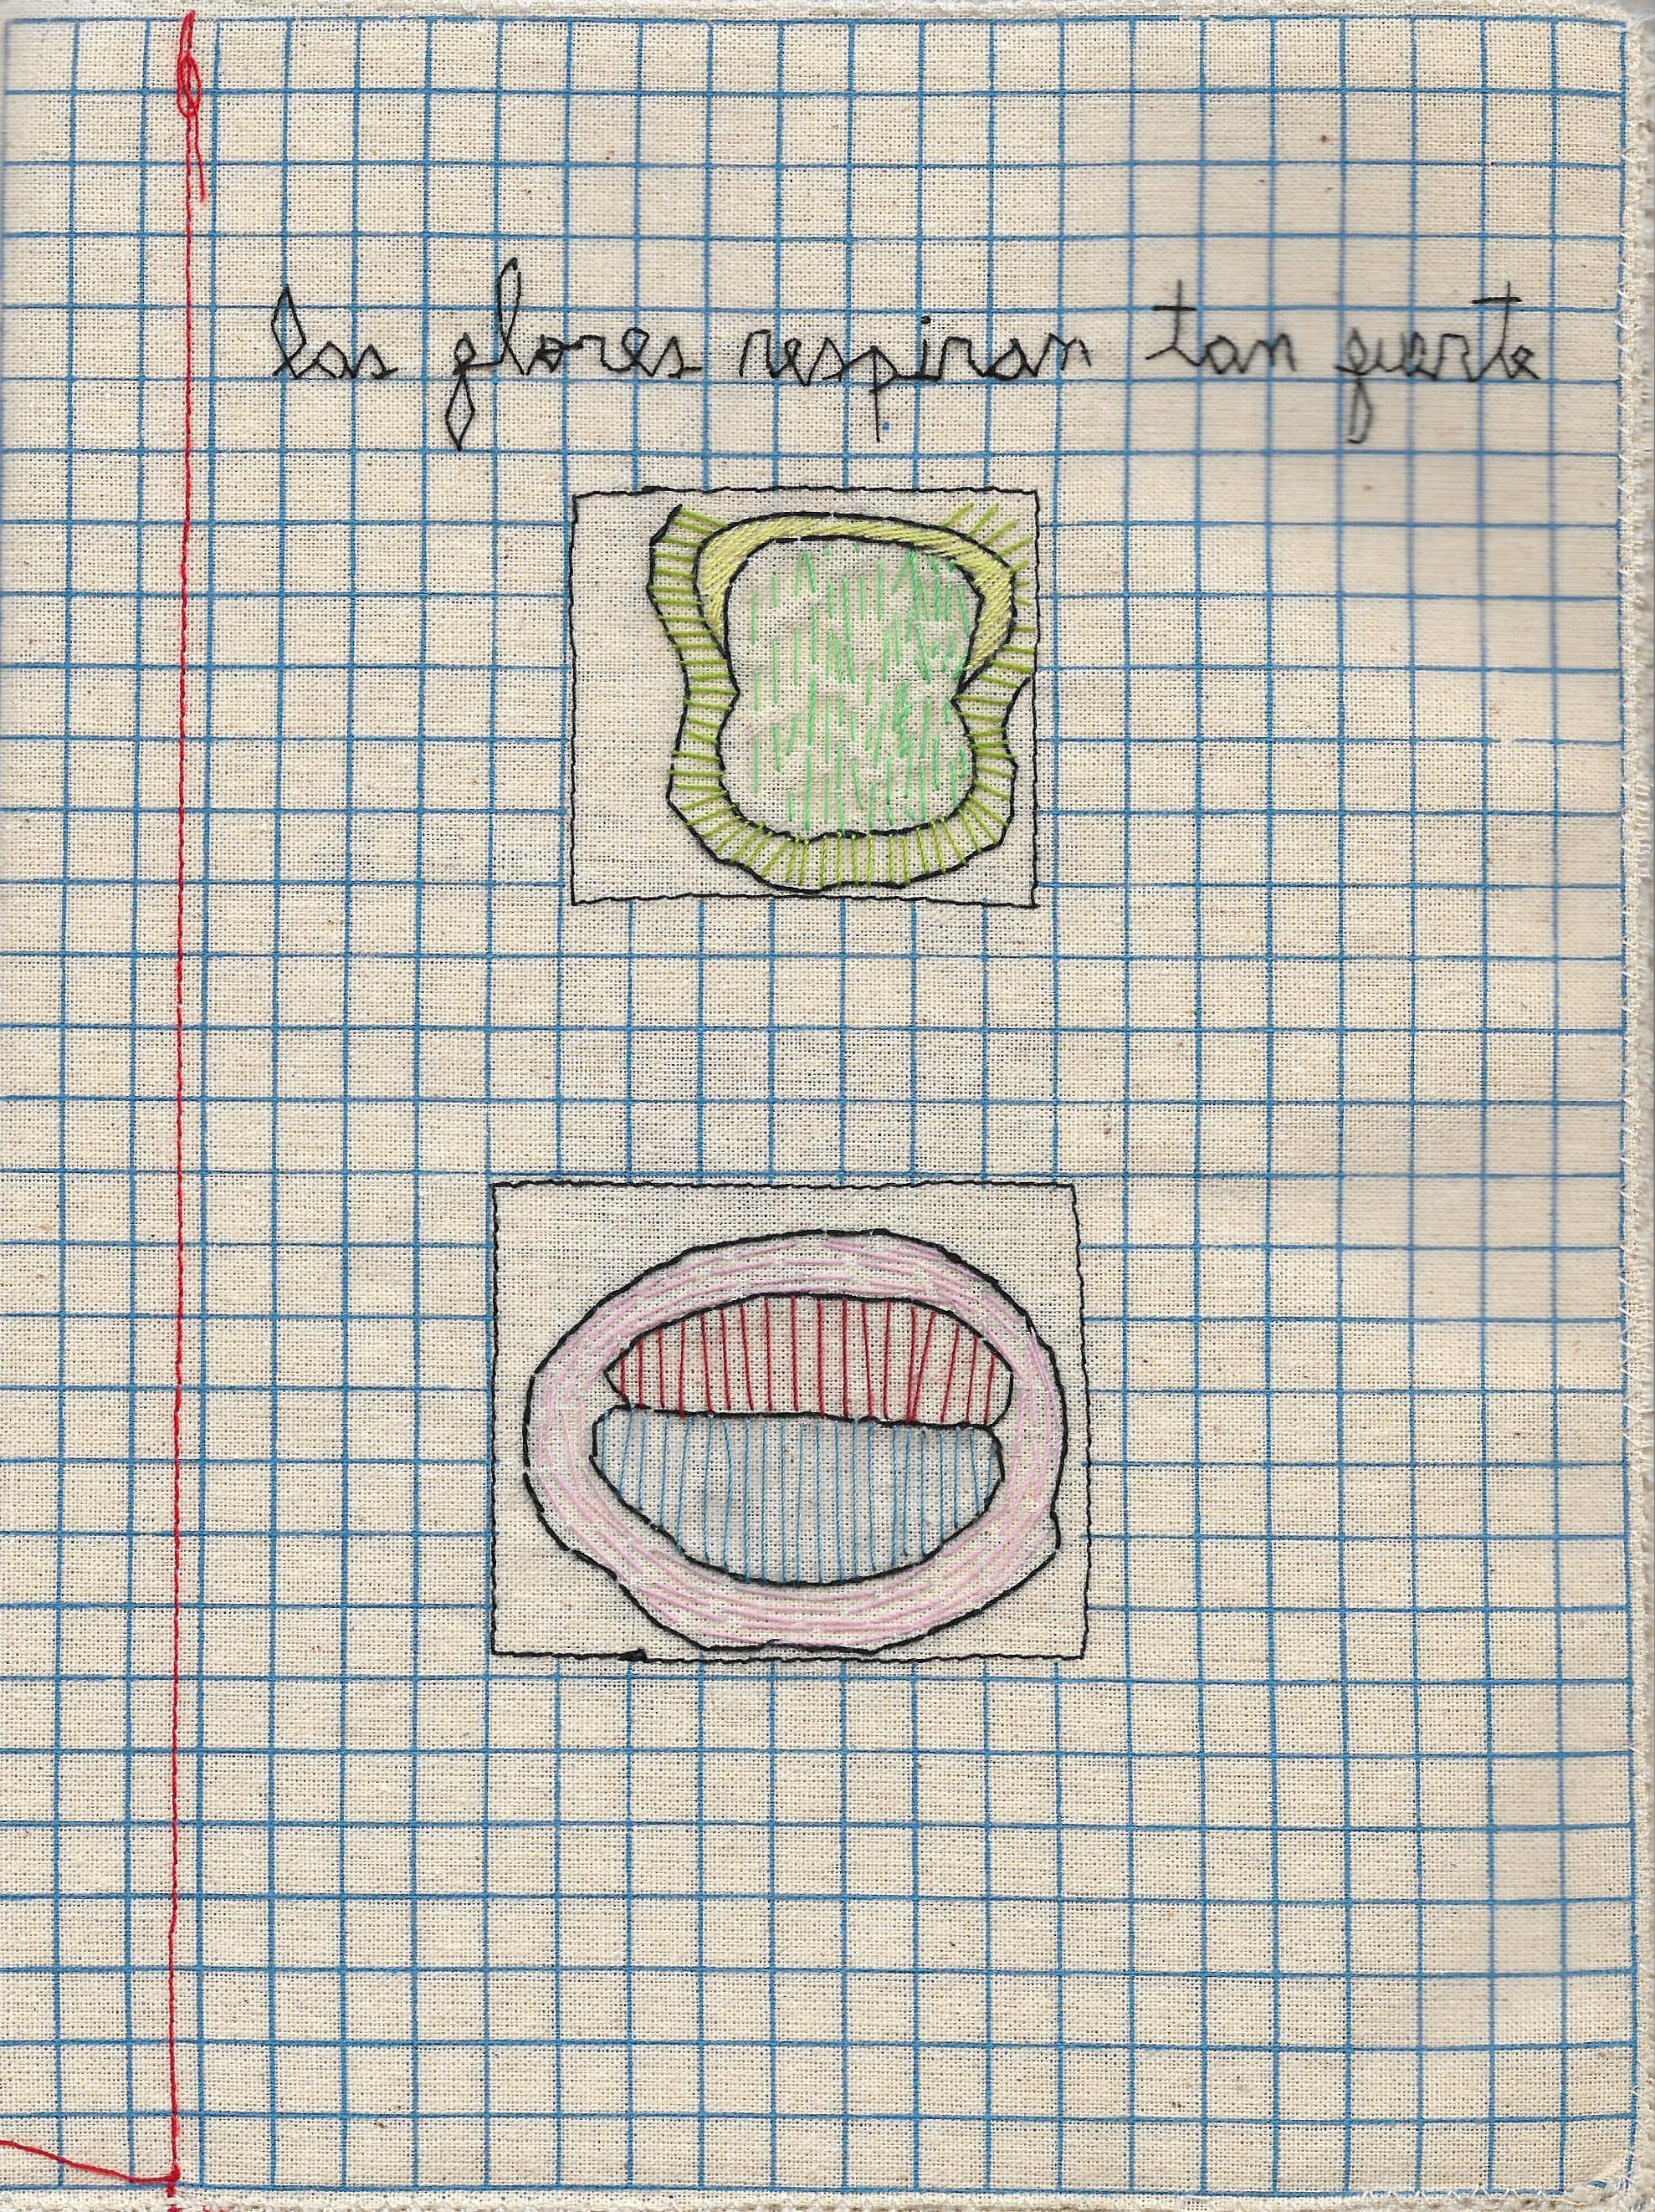 las flores respiran tan fuerte